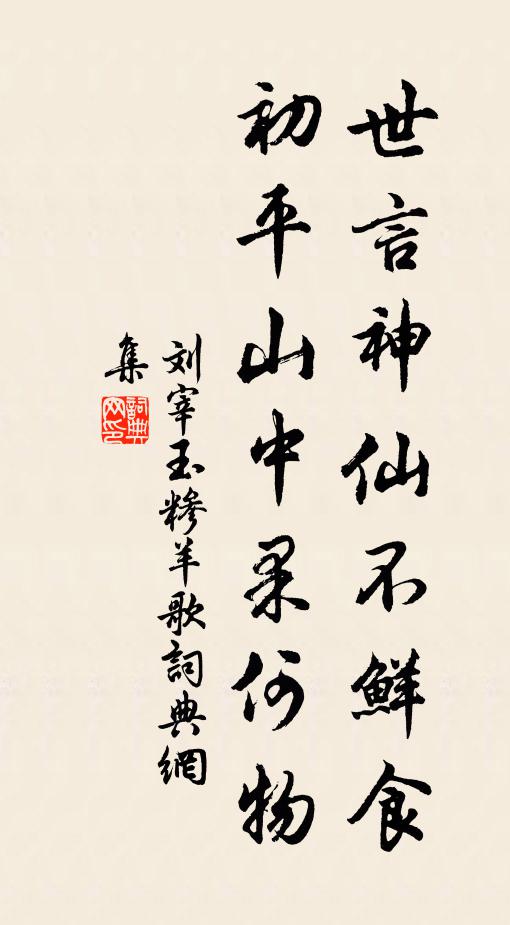 世言神仙不鮮食
初平山中果何物
刘宰玉糝羊歌詞典網
集
詞典
网印